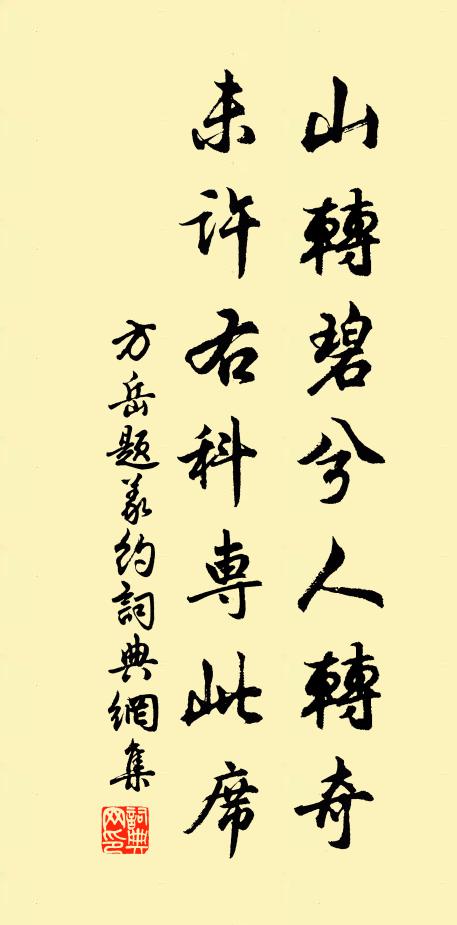 山轉碧兮人轉奇
未許右科專此席
方岳題義約詞典網集
詞典网印